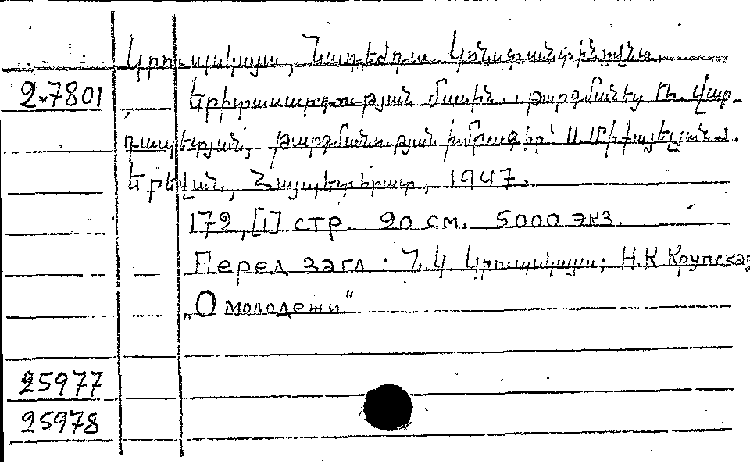 Կրուպսկայա, Նադեժդա Կոնստանտինովնա.
2-7801 Երիտասարդության մասին. թարգմանեց Ռ. Վար-
դապետյան, թարգմանության խմբագիր՝ Ա. Միքայելյան.
Երեվան, Հայպետհրատ, 1947.
179, [1] стр. 20 см. 5000 экз.
Перед загл.: Ն.Կ. Կրուպսկայա; Н.К. Крупская,
„О молодежи"
25977
25978